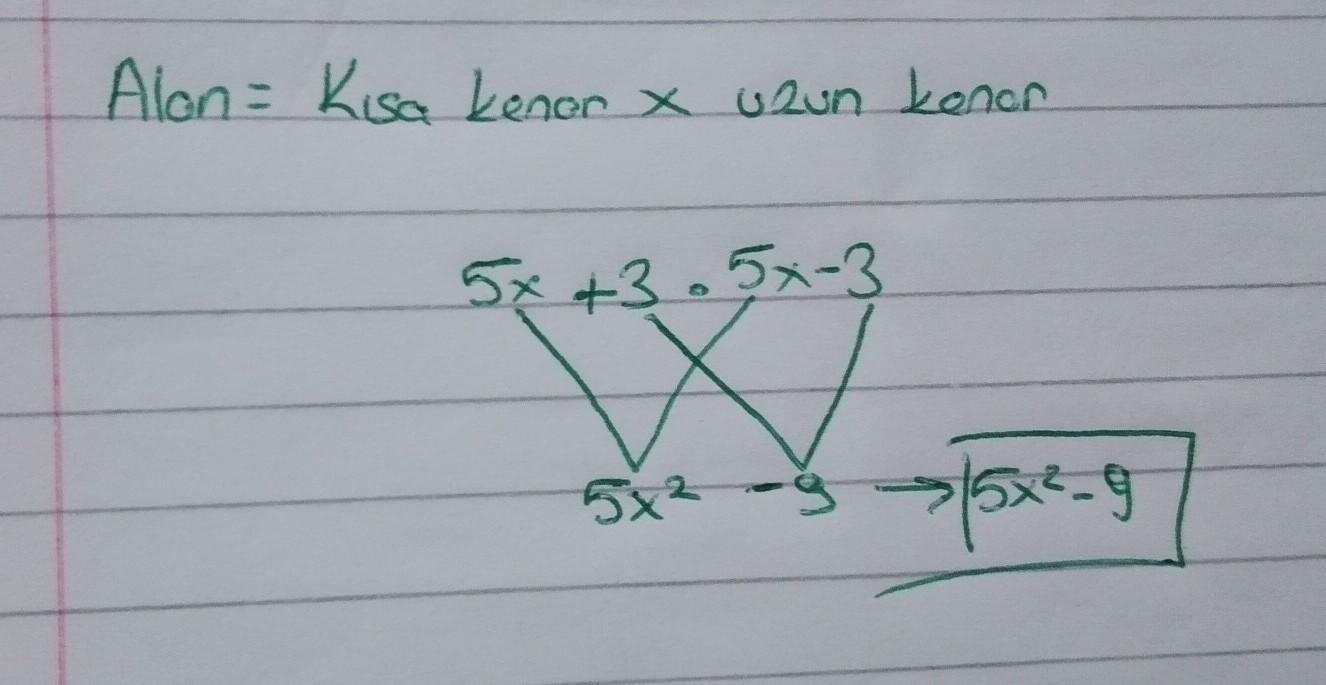 Alan = Kısa kenar x uzun kenar
5x + 3 . 5x - 3
5x² - 9 → 5x² - 9